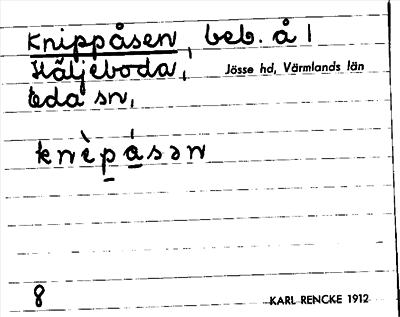 Knippåsen, beb. å 1
Häljeboda, Jösse hd, Värmlands län
Eda sn,
knèpåsən
8
KARL RENCKE 1912